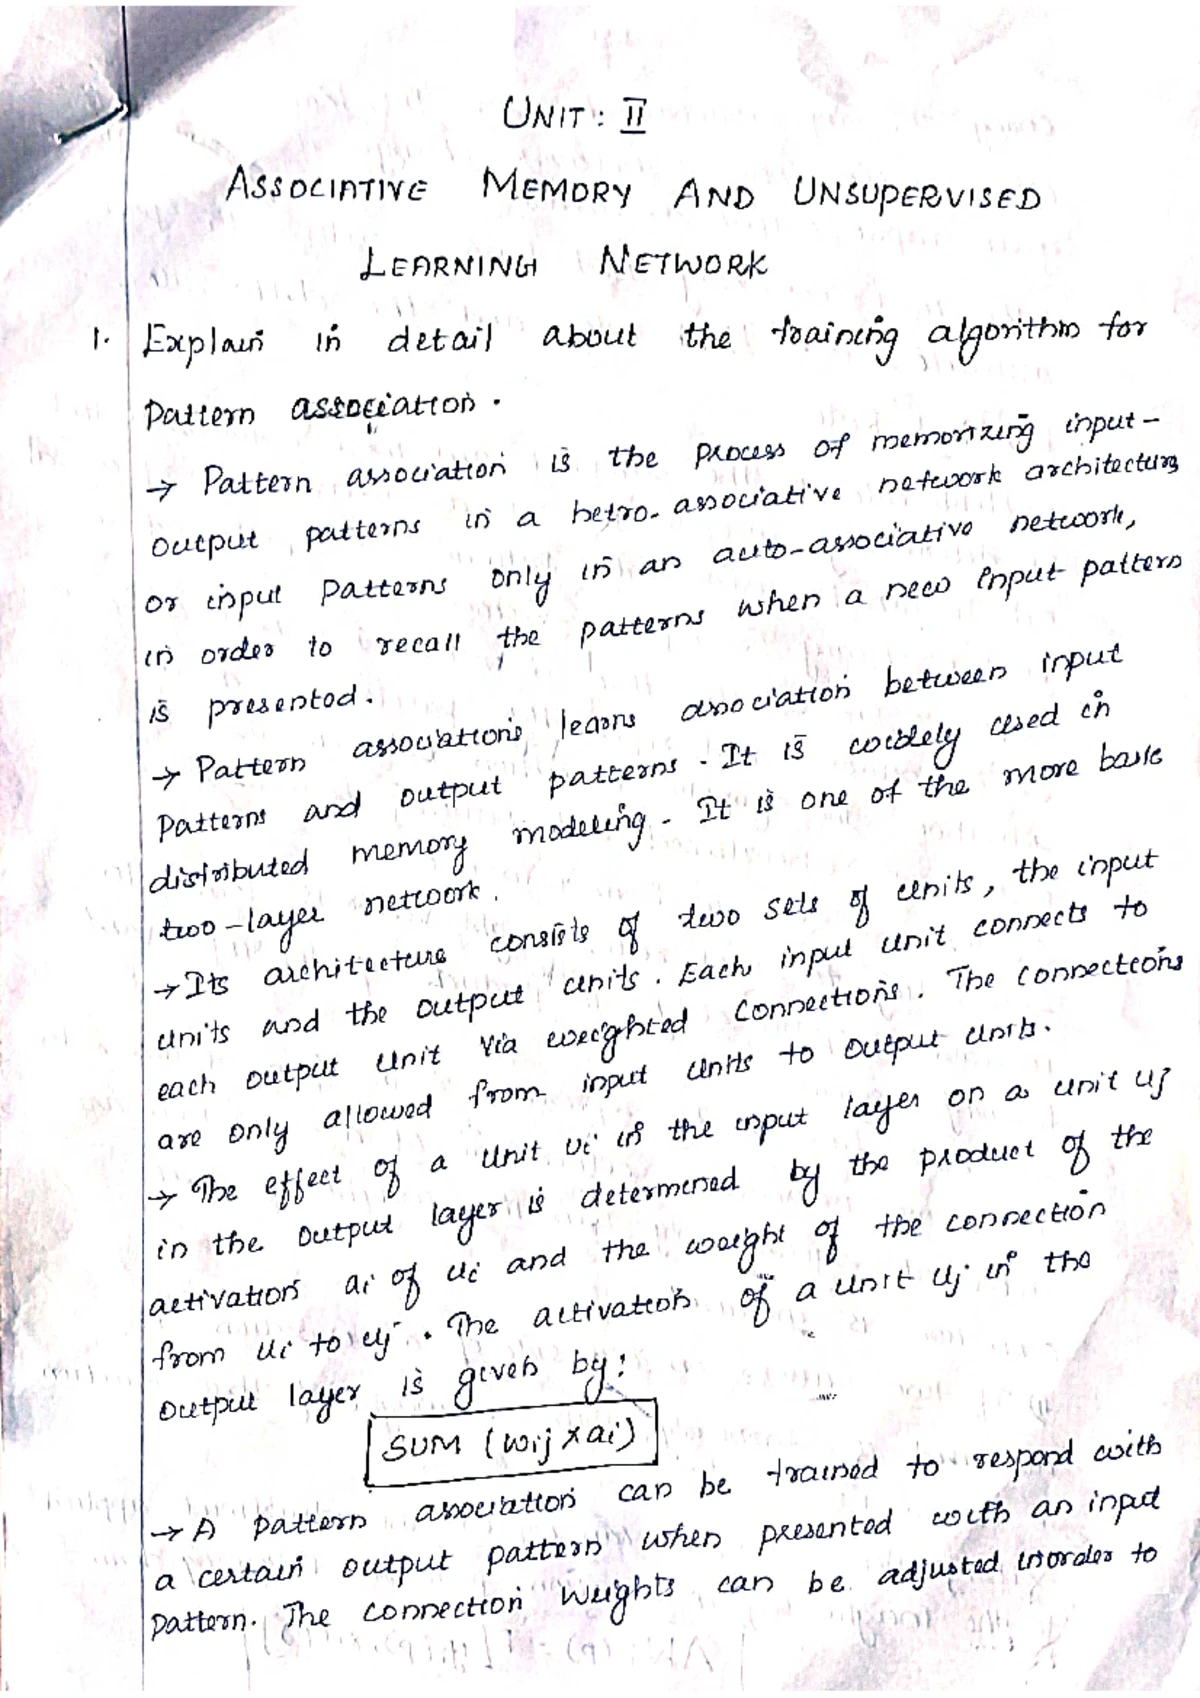 UNIT : II
ASSOCIATIVE MEMORY AND UNSUPERVISED
LEARNING NETWORK
1. Explain in detail about the training algorithm for
pattern association.
→ Pattern association is the process of memorizing input-
output patterns in a hetro-associative network architecture
or input patterns only in an auto-associative network,
in order to recall the patterns when a new input pattern
is presented.
→ Pattern associations learns association between input
patterns and output patterns. It is widely used in
distributed memory modeling. It is one of the more basic
two-layer network.
→ Its architecture consists of two sets of units, the input
units and the output units. Each input unit connects to
each output unit via weighted connections. The connections
are only allowed from input units to output units.
→ The effect of a unit ui in the input layer on a unit uj
in the output layer is determined by the product of the
activation ai of ui and the weight of the connection
from ui to uj. The activation of a unit uj in the
output layer is given by:
SUM (wij x ai)
→ A pattern association can be trained to respond with
a certain output pattern when presented with an input
pattern. The connection weights can be adjusted inorder to